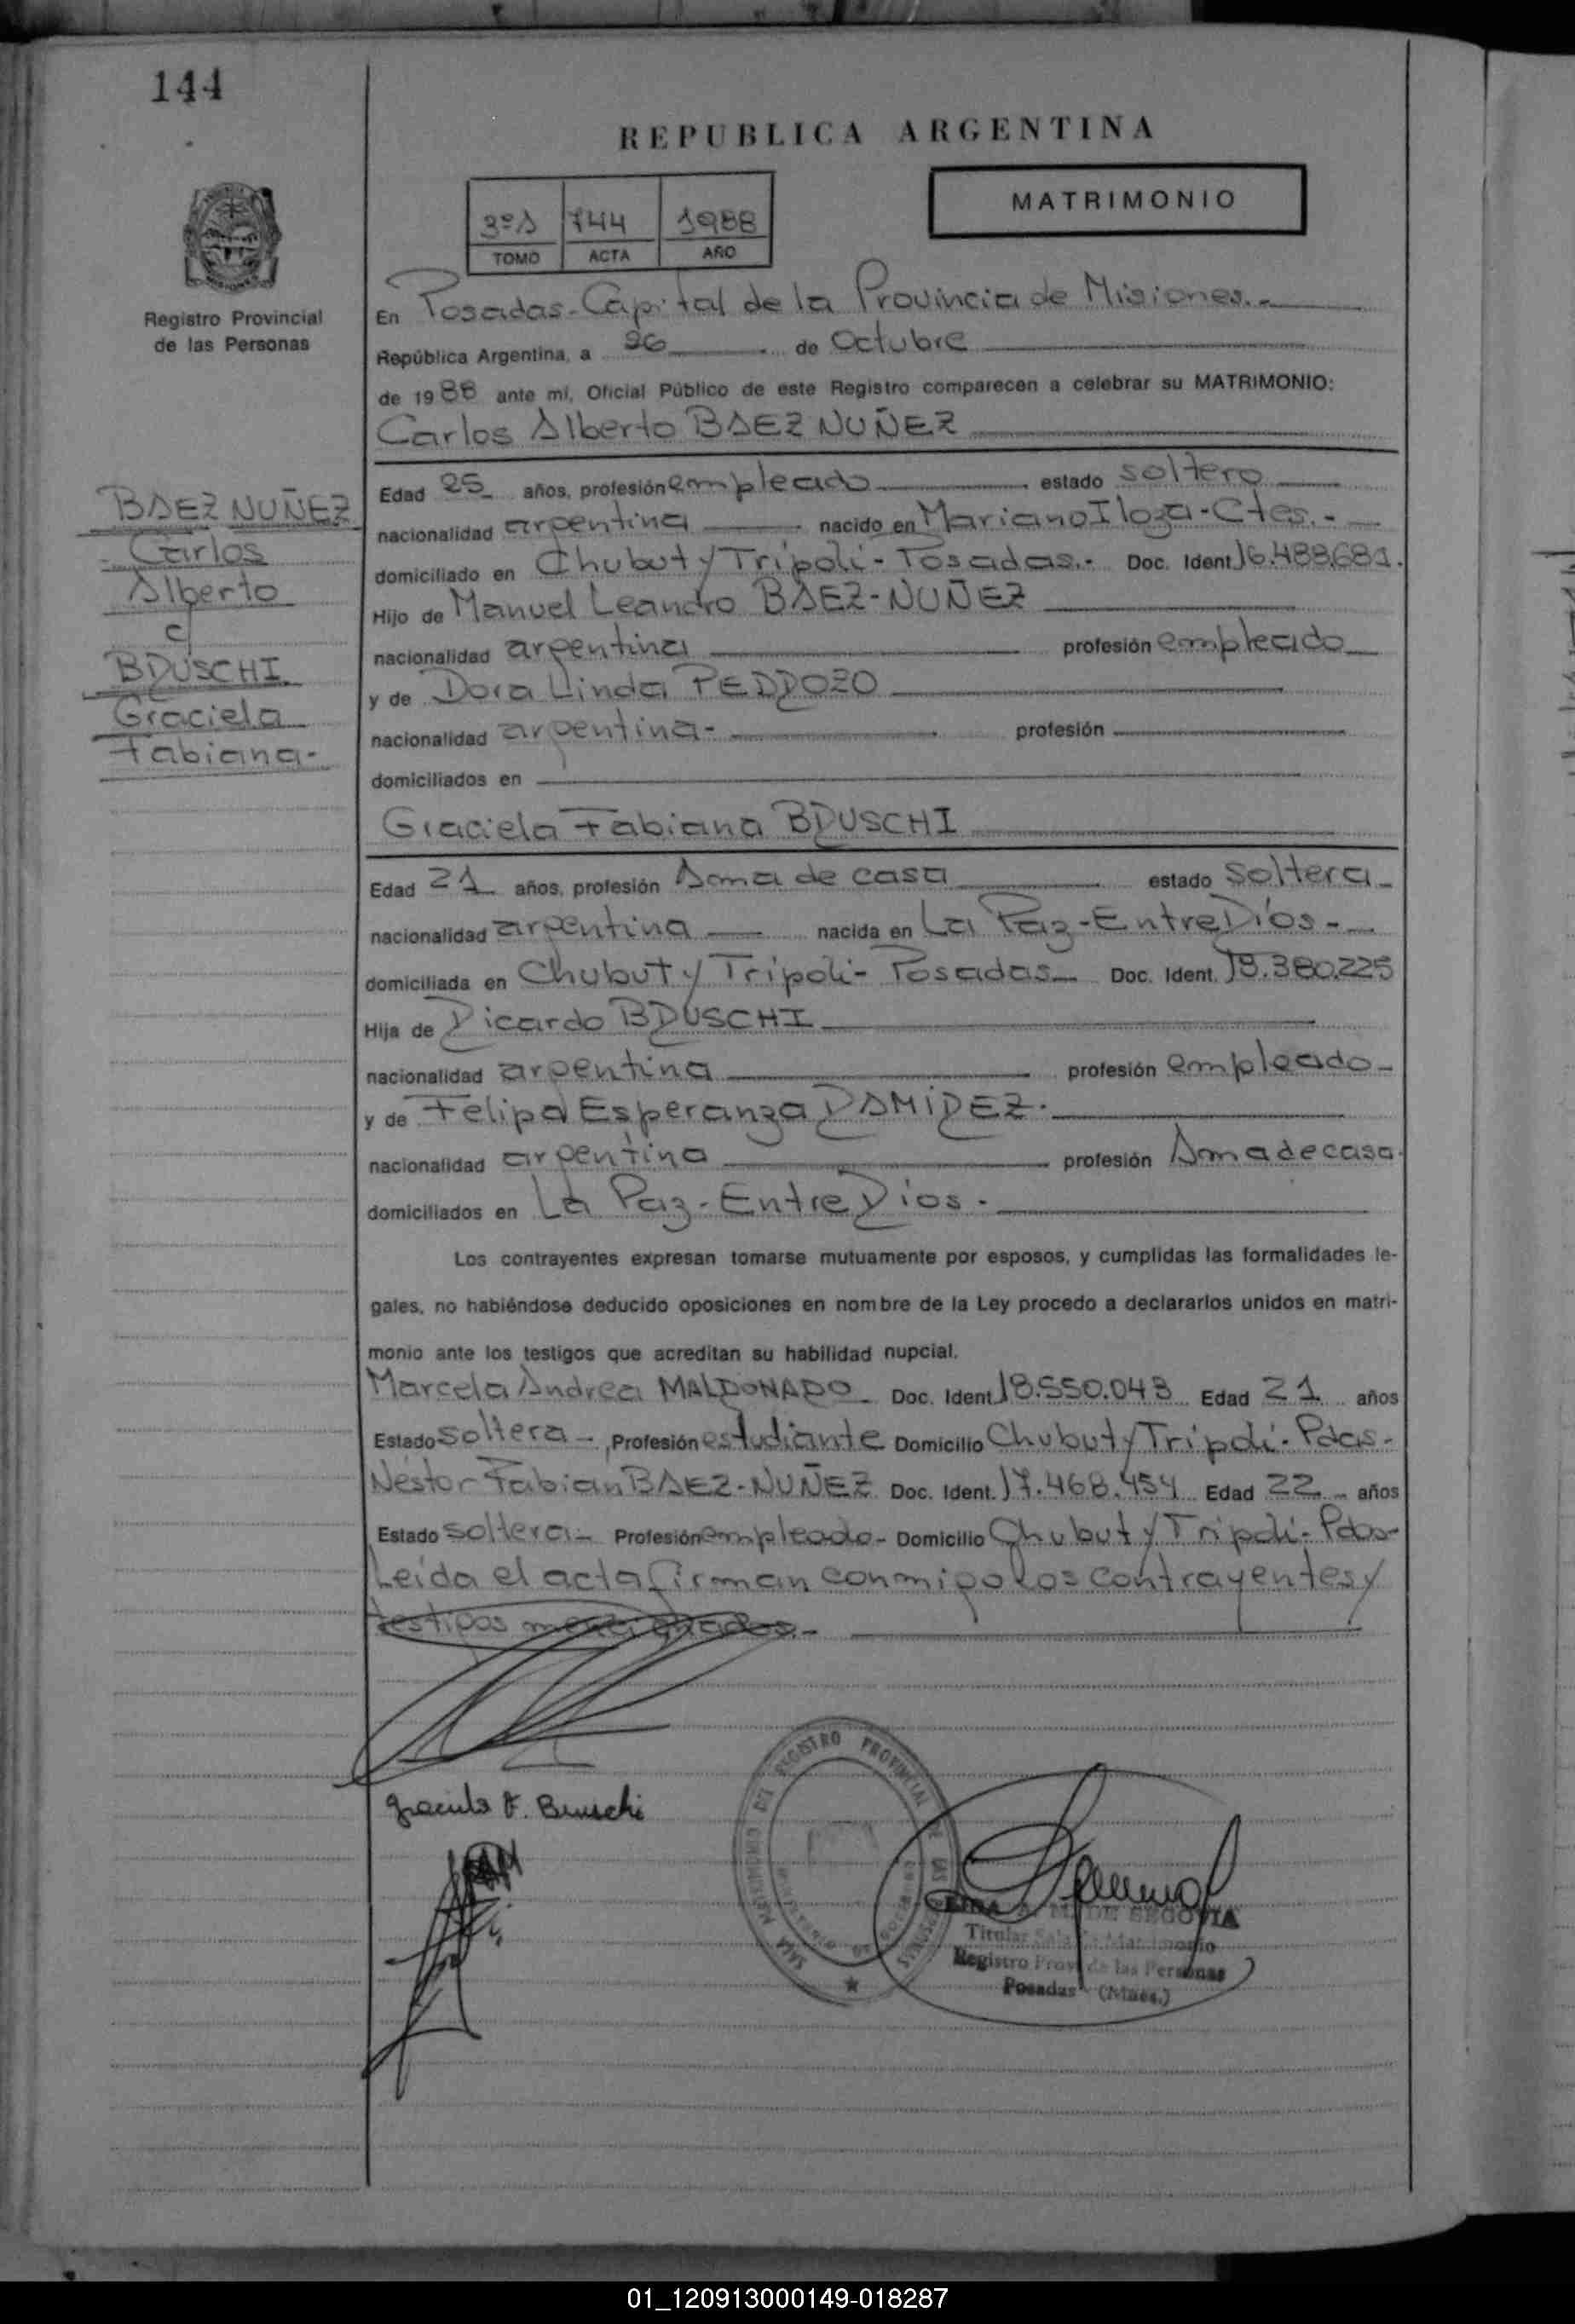 144
REPUBLICA ARGENTINA
MATRIMONIO
3º A 744 1988
TOMO ACTA AÑO
Registro Provincial
de las Personas
En Posadas-Capital de la Provincia de Misiones.-
República Argentina, a 26 de Octubre
de 1988 ante mí, Oficial Público de este Registro comparecen a celebrar su MATRIMONIO:
Carlos Alberto BAEZ NUÑEZ
BAEZ NUÑEZ
Carlos
Alberto
c/
BRUSCHI
Graciela
Fabiana-
Edad 25 años, profesión empleado estado soltero
nacionalidad argentina nacido en Mariano I loza-Ctes.-
domiciliado en Chubut y Trípoli-Posadas.- Doc. Ident. 16.488.681.
Hijo de Manuel Leandro BAEZ-NUÑEZ
nacionalidad argentina profesión empleado
y de Dora Linda PEDROZO
nacionalidad argentina- profesión
domiciliados en
Graciela Fabiana BRUSCHI
Edad 21 años, profesión Ama de casa estado soltera-
nacionalidad argentina nacida en La Paz-Entre Ríos-
domiciliada en Chubut y Trípoli-Posadas Doc. Ident. 18.380.225
Hija de Ricardo BRUSCHI
nacionalidad argentina profesión empleado-
y de Felipa Esperanza RAMIREZ.
nacionalidad argentina profesión Ama de casa.
domiciliados en La Paz-Entre Ríos.
Los contrayentes expresan tomarse mutuamente por esposos, y cumplidas las formalidades le-
gales, no habiéndose deducido oposiciones en nombre de la Ley procedo a declararlos unidos en matri-
monio ante los testigos que acreditan su habilidad nupcial.
Marcela Andrea MALDONADO Doc. Ident. 18.550.043 Edad 21 años
Estado soltera- Profesión estudiante Domicilio Chubut y Trípoli-Pdas-
Néstor Fabian BAEZ-NUÑEZ Doc. Ident. 17.468.454 Edad 22 años
Estado soltera- Profesión empleado- Domicilio Chubut y Trípoli-Pdas-
Leída el acta firman conmigo los contrayentes y
testigos mencionados.-
Graciela F. Bruschi
SALA MATRIMONIO DEL REGISTRO PROVINCIAL DE LAS PERSONAS
DE SEGOVIA
Titular Sala de Matrimonio
Registro Prov. de las Personas
Posadas (Mnes.)
01_120913000149-018287